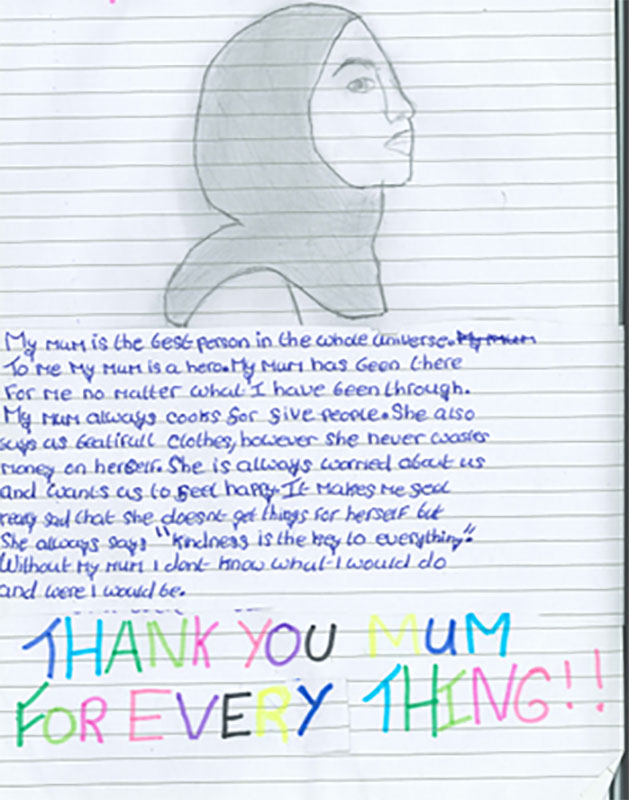 My mum is the best person in the whole universe.
To me my mum is a hero. My mum has been there
for me no matter what I have been through.
My mum always cooks for five people. She also
buys us beatifull clothes, however she never wastes
money on herself. She is always worried about us
and wants us to feel happy. It makes me feel
really sad that she doesnt get things for herself but
She always says "kindness is the key to everything".
Without my mum I dont know what I would do
and were I would be.
THANK YOU MUM
FOR EVERY THING!!